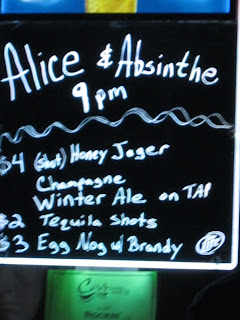 Alice & Absinthe
9 pm
$4 (shot) Honey Jager
Champagne
Winter Ale on TAP
$2 Tequila Shots
$3 Egg Nog w/ Brandy
Lite